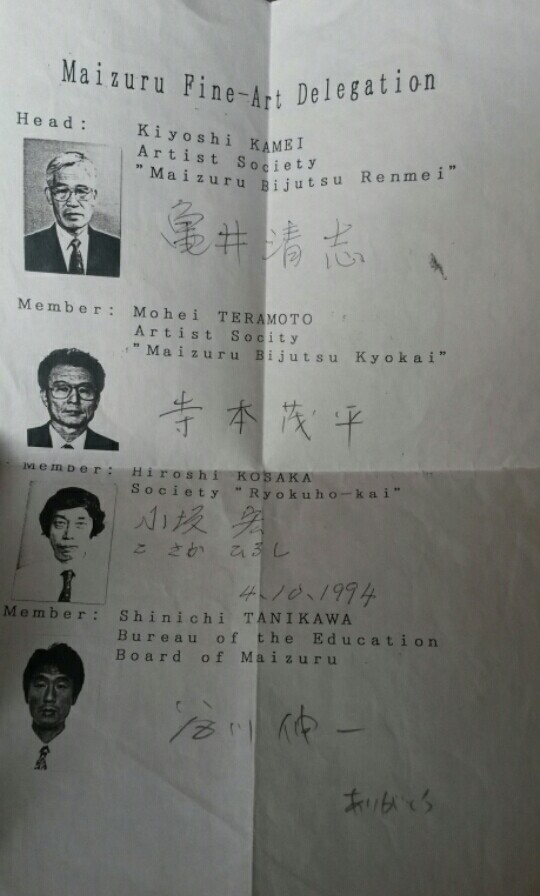 Maizuru Fine-Art Delegation
Head: Kiyoshi KAMEI
Artist Society
"Maizuru Bijutsu Renmei"
亀井清志
Member: Mohei TERAMOTO
Artist Socity
"Maizuru Bijutsu Kyokai"
寺本茂平
Member: Hiroshi KOSAKA
Society "Ryokuho-kai"
小坂 宏
こさか ひろし
4.10.1994
Member: Shinichi TANIKAWA
Bureau of the Education
Board of Maizuru
谷川伸一
ありがとう